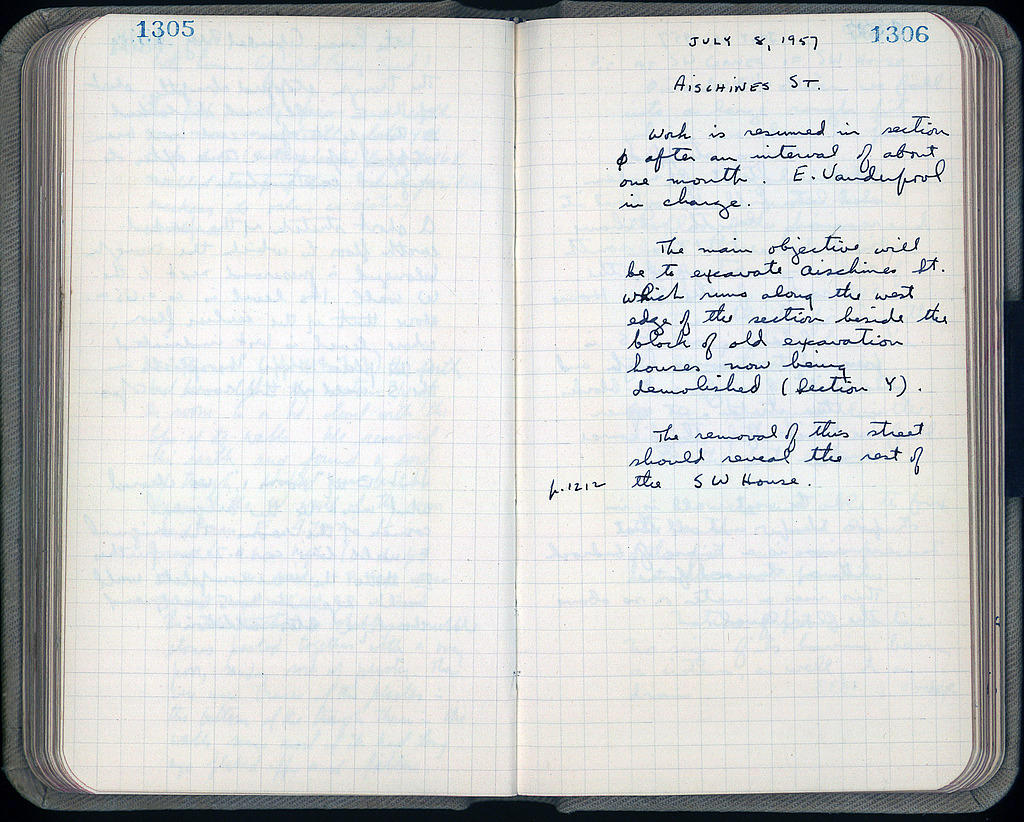 1305
1306
JULY 8, 1957
AISCHINES ST.
Work is resumed in section
φ after an interval of about
one month. E. Vanderpool
in charge.
The main objective will
be to excavate Aischines St.
which runs along the west
edge of the section beside the
block of old excavation
houses now being
demolished (Section Y).
The removal of this street
should reveal the rest of
p.1212 the SW House.